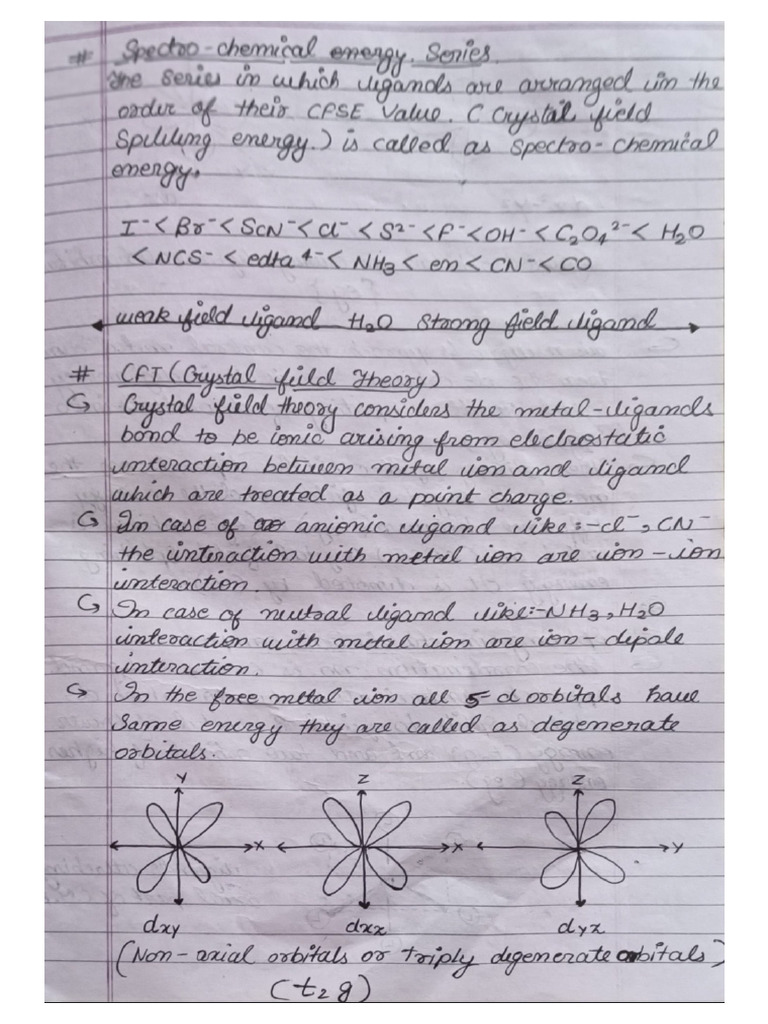 # Spectro-chemical energy. Series.
The series in which ligands are arranged in the
order of their CFSE Value. ( Crystal field
Spliling energy.) is called as spectro-chemical
energy.
I⁻ < Br⁻ < SCN⁻ < Cl⁻ < S²⁻ < F⁻ < OH⁻ < C₂O₄²⁻ < H₂O
< NCS⁻ < edta⁴⁻ < NH₃ < en < CN⁻ < CO
weak field ligand H₂O Strong field ligand
# CFT (Crystal field Theory)
Crystal field theory considers the metal-ligands
bond to be ionic arising from electrostatic
interaction between metal ion and ligand
which are treated as a point charge.
In case of anionic ligand like:-Cl⁻, CN⁻
the interaction with metal ion are ion-ion
interaction.
In case of neutral ligand like:-NH₃, H₂O
interaction with metal ion are ion-dipole
interaction.
In the free metal ion all 5 d orbitals have
Same energy they are called as degenerate
orbitals.
Y Z Z
X X Y
dxy dxz dyz
(Non-axial orbitals or triply degenerate orbitals)
(t₂g)